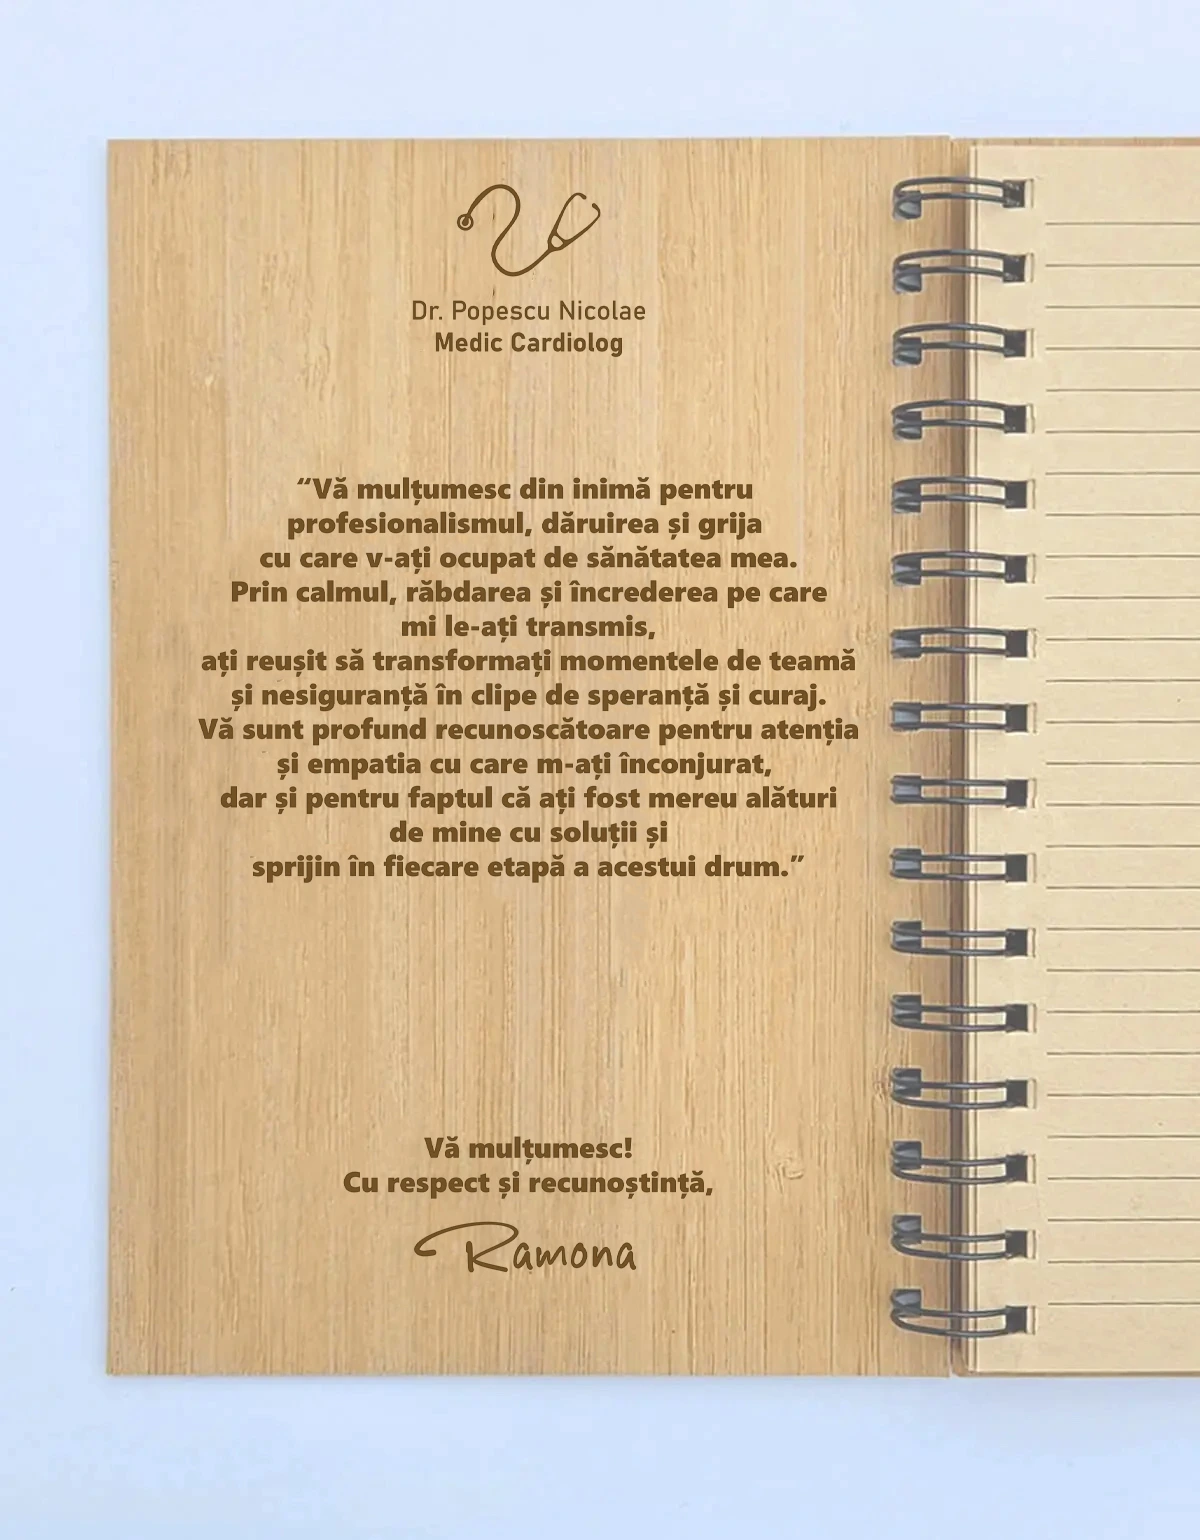 Dr. Popescu Nicolae
Medic Cardiolog
“Vă mulțumesc din inimă pentru
profesionalismul, dăruirea și grija
cu care v-ați ocupat de sănătatea mea.
Prin calmul, răbdarea și încrederea pe care
mi le-ați transmis,
ați reușit să transformați momentele de teamă
și nesiguranță în clipe de speranță și curaj.
Vă sunt profund recunoscătoare pentru atenția
și empatia cu care m-ați înconjurat,
dar și pentru faptul că ați fost mereu alături
de mine cu soluții și
sprijin în fiecare etapă a acestui drum.”
Vă mulțumesc!
Cu respect și recunoștință,
Ramona